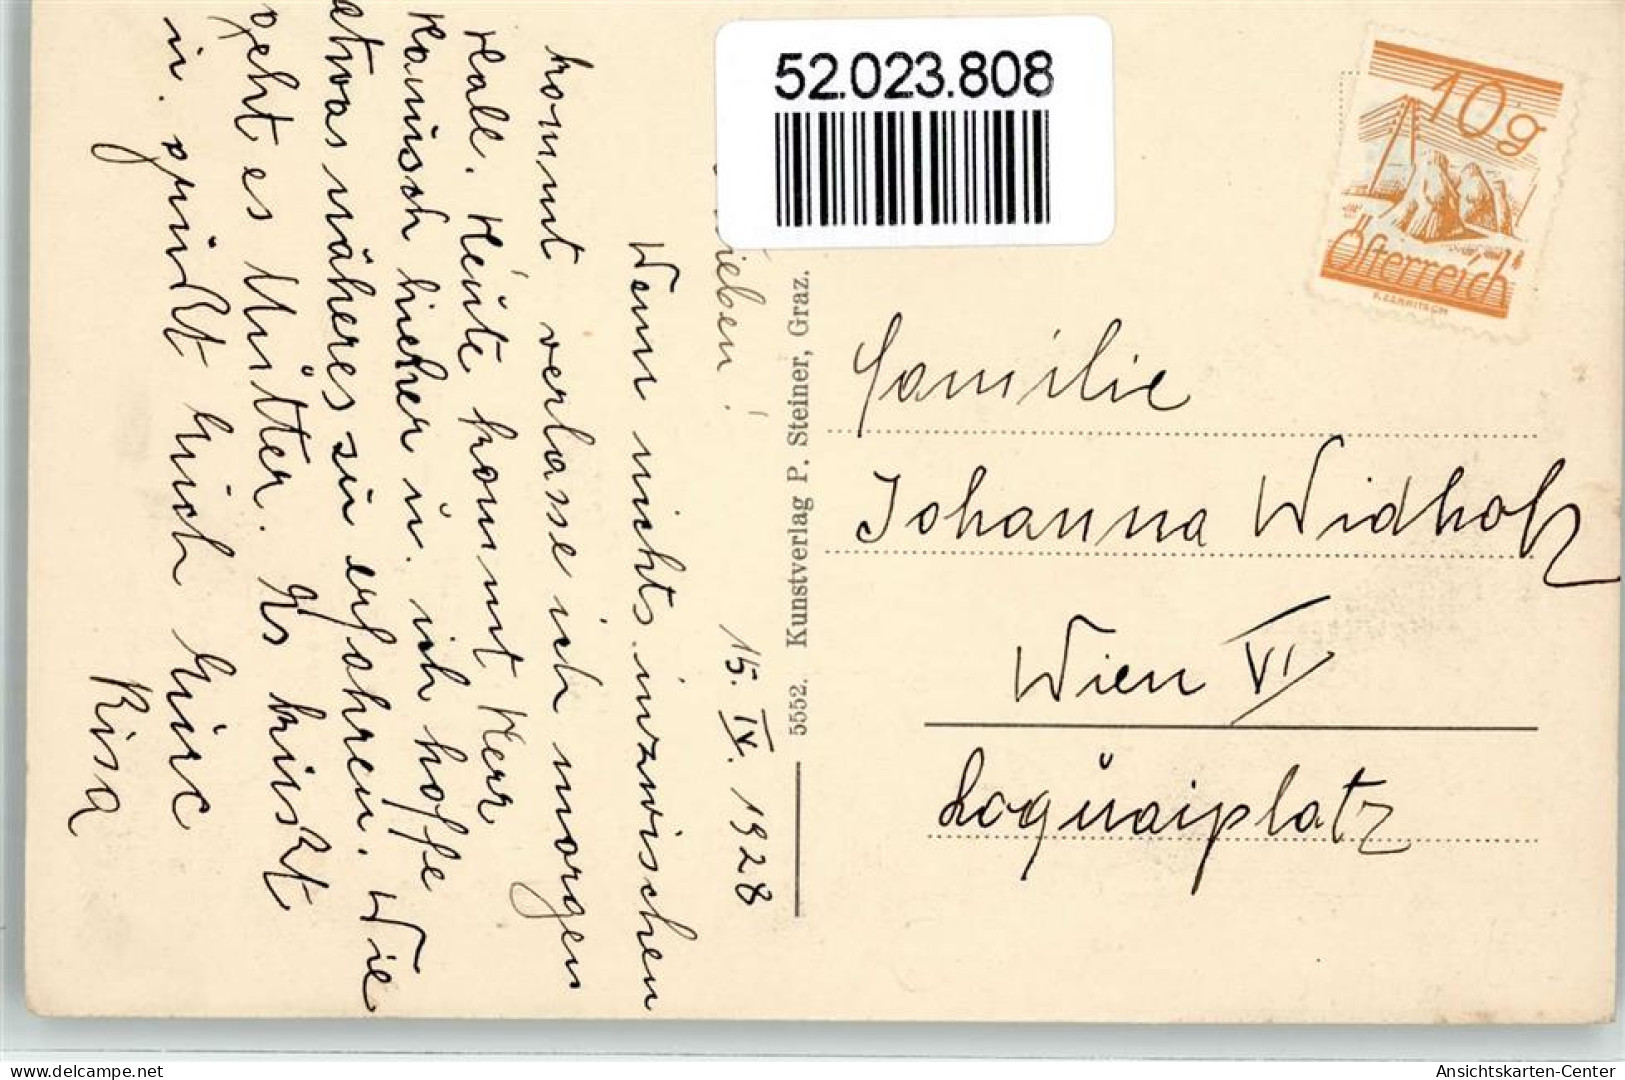 52.023.808
10g
Österreich
15. IV. 1928
ieben!
Wenn nichts inzwischen
kommt verlasse ich morgen
Hall. Heute kommt Herr
hieher u. ich hoffe
etwas näheres zu erfahren. Wie
geht es Mutter. Es küsst
u. grüßt
Risa
5552. Kunstverlag P. Steiner, Graz.
Familie
Johanna Widholz
Wien VI
Loquaiplatz
www.delcampe.net
Ansichtskarten-Center